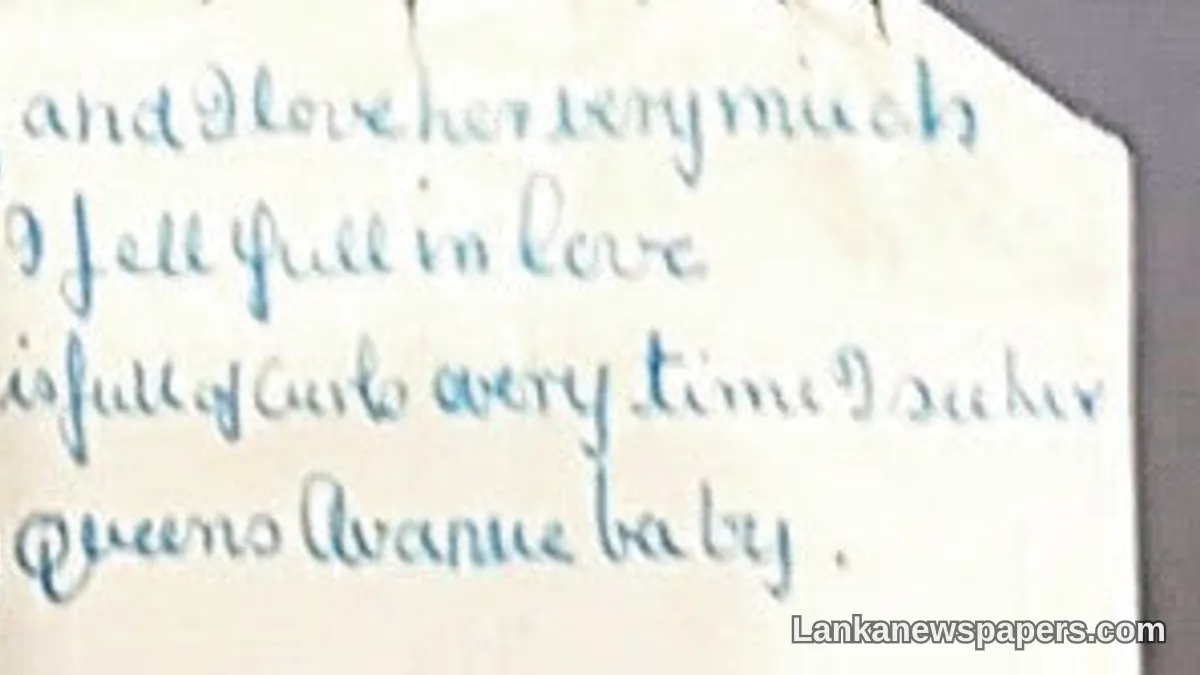 and I love her very much
I fell full in love
is full of Curls every time I see her
queens Avanue baby.
Lankanewspapers.com